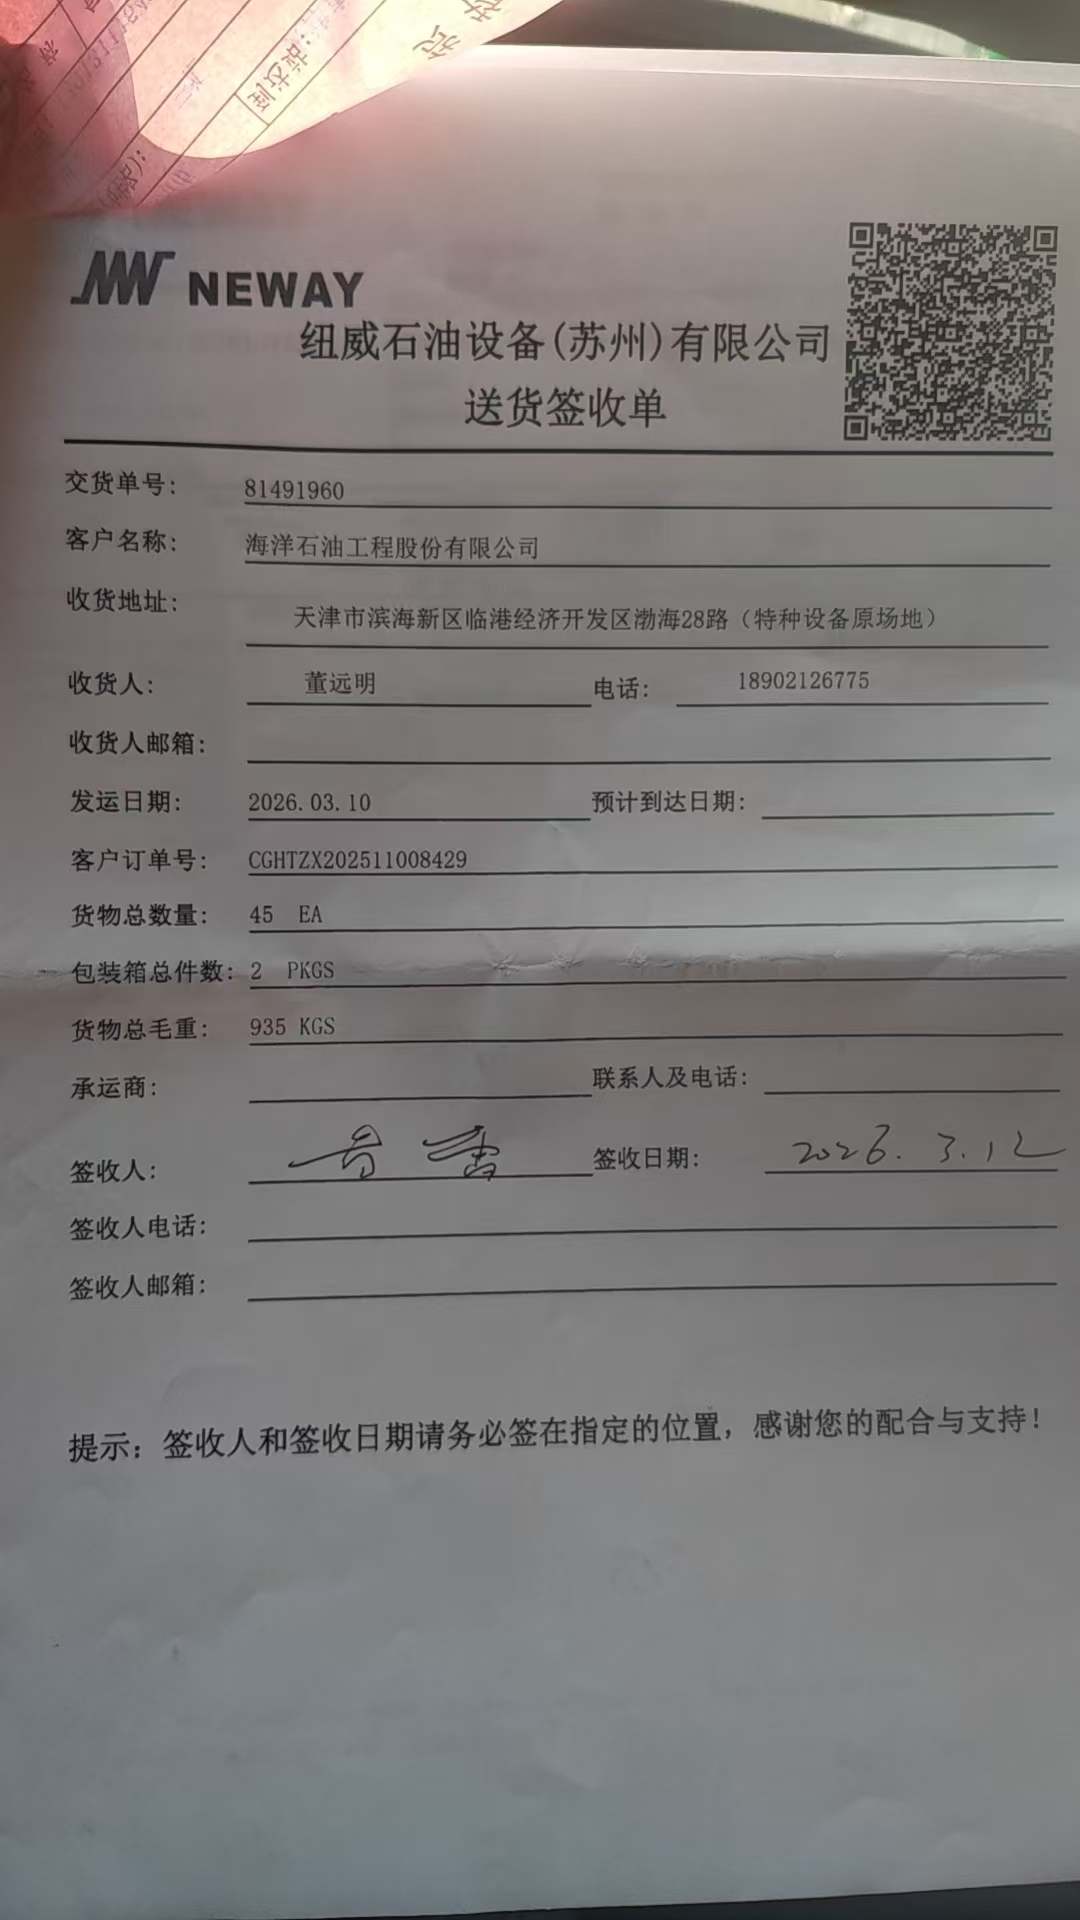 NEWAY
纽威石油设备(苏州)有限公司
送货签收单
交货单号: 81491960
客户名称: 海洋石油工程股份有限公司
收货地址: 天津市滨海新区临港经济开发区渤海28路（特种设备原场地）
收货人: 董远明 电话: 18902126775
收货人邮箱:
发运日期: 2026.03.10 预计到达日期:
客户订单号: CGHTZX202511008429
货物总数量: 45 EA
包装箱总件数: 2 PKGS
货物总毛重: 935 KGS
承运商: 联系人及电话:
签收人: 签收日期: 2026.3.12
签收人电话:
签收人邮箱:
提示: 签收人和签收日期请务必签在指定的位置, 感谢您的配合与支持!